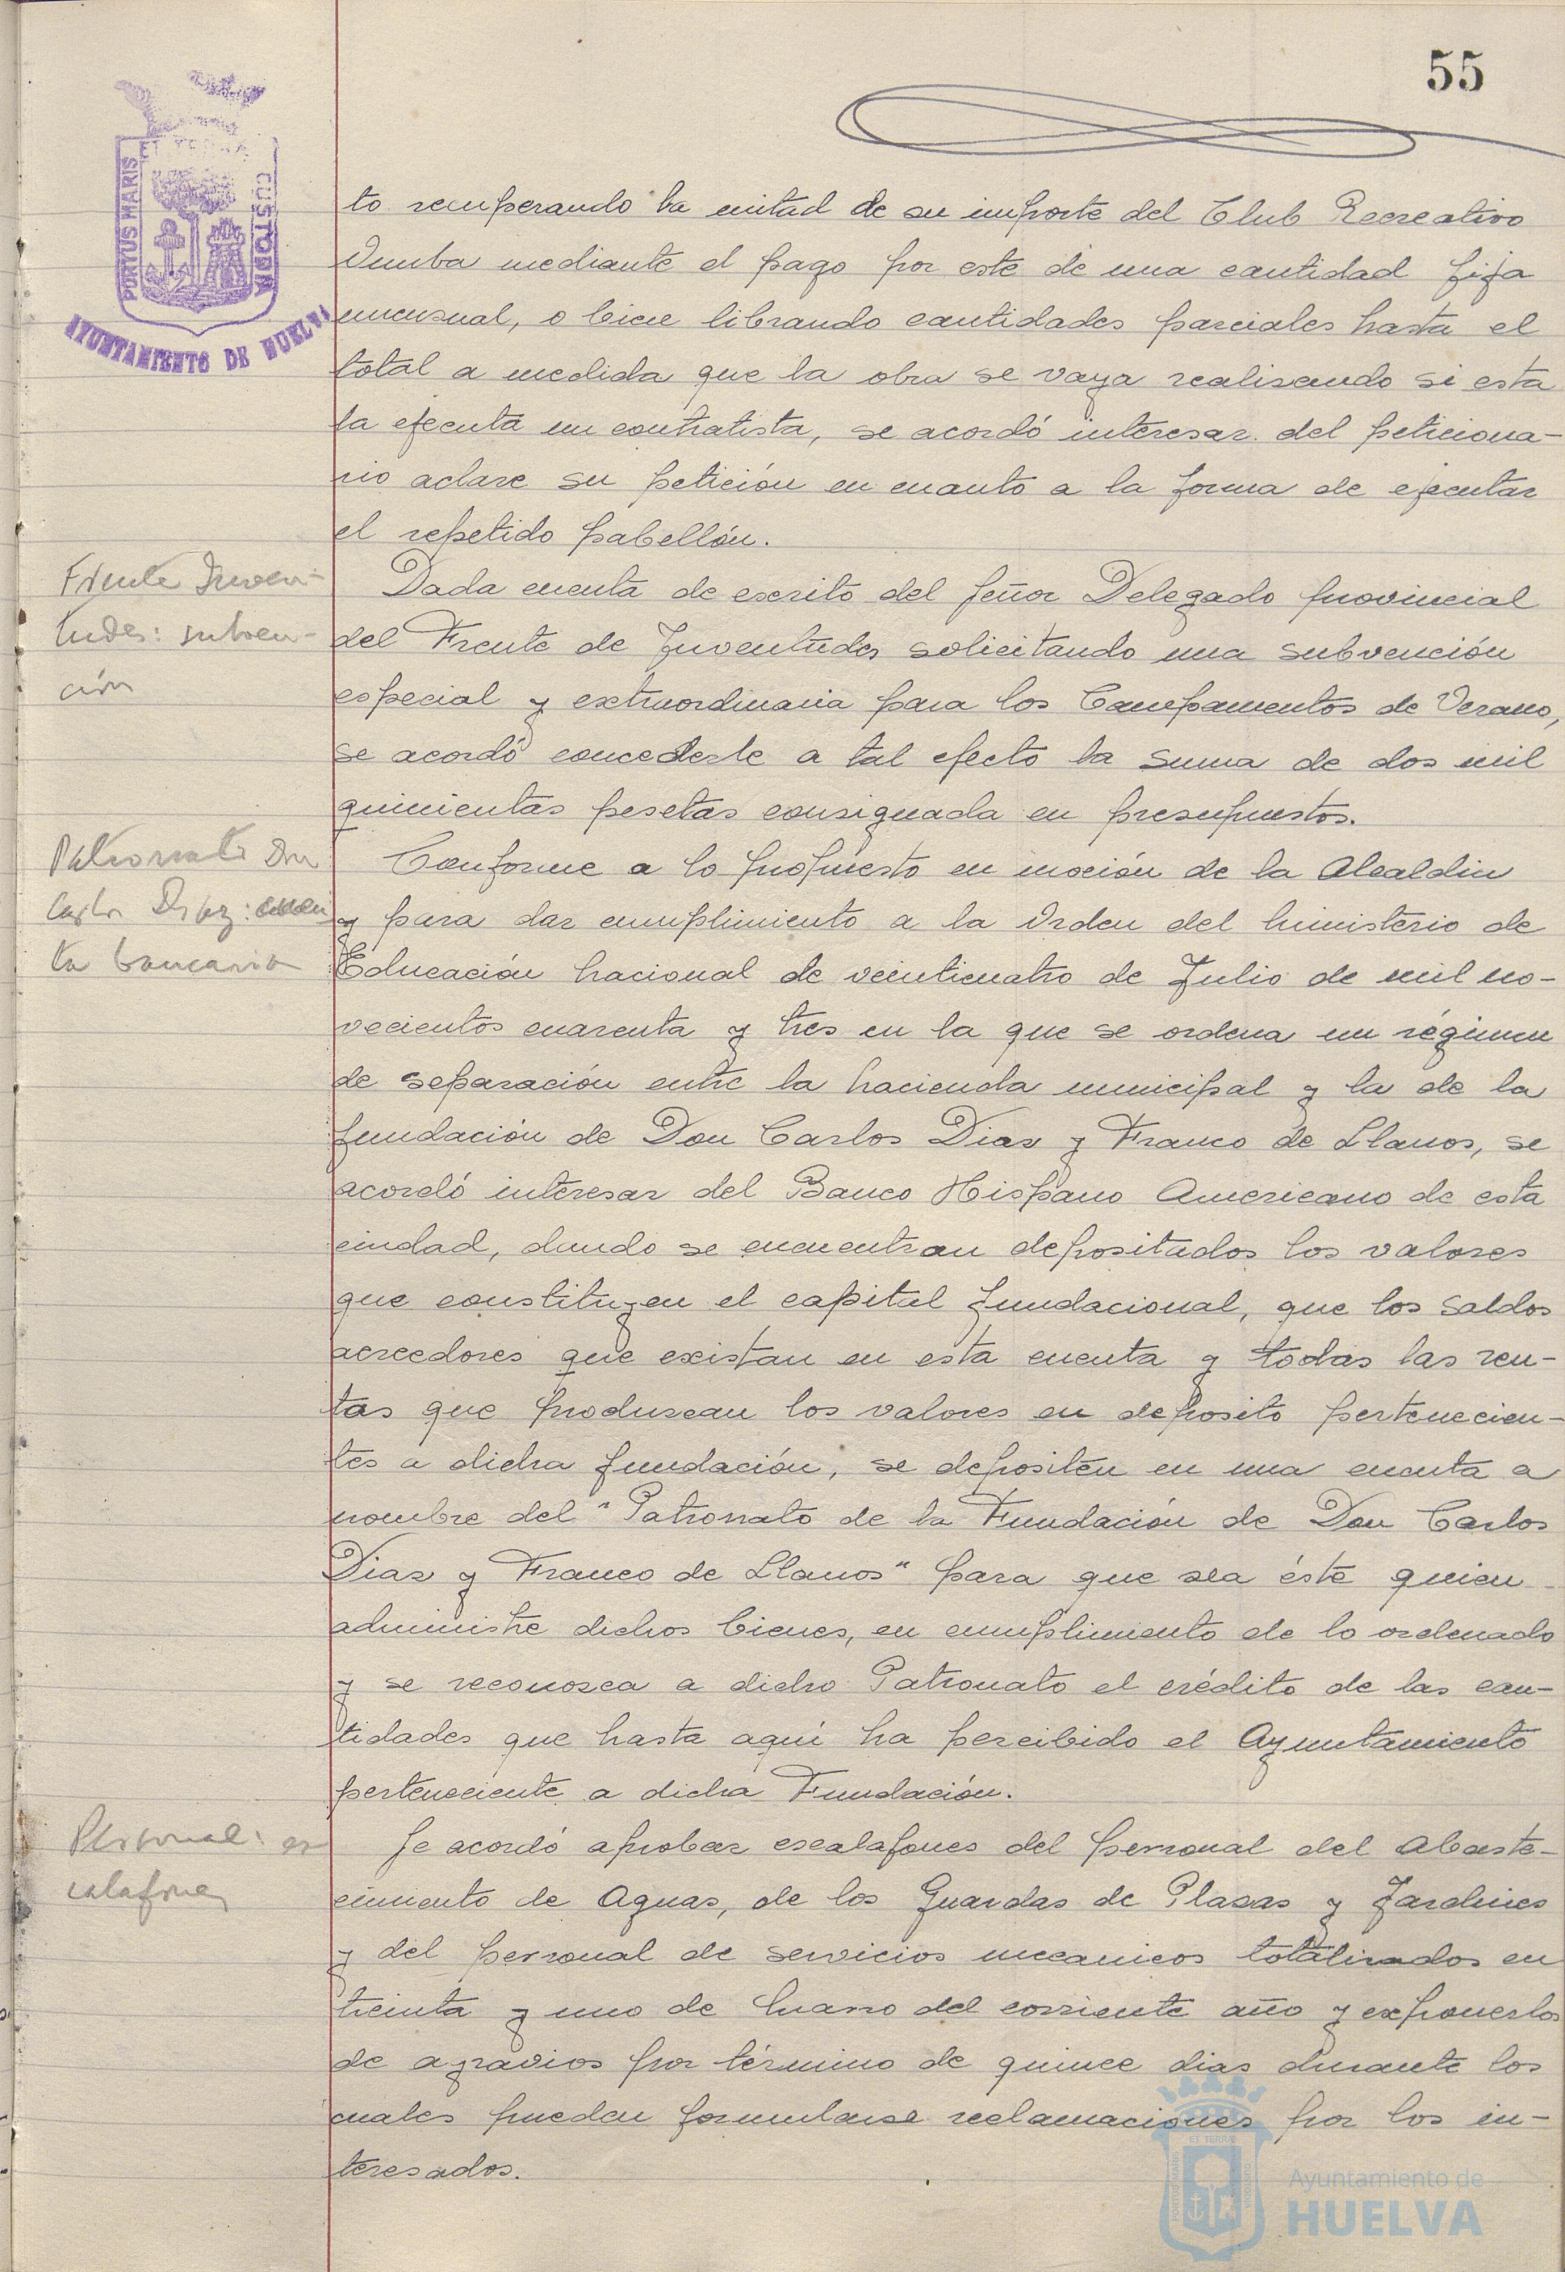 55
PORTUS MARIS
ET TERRA
CUSTODIA
AYUNTAMIENTO DE HUELVA
to recuperando la mitad de su importe del Club Recreativo
Onuba mediante el pago por este de una cantidad fija
mensual, o bien librando cantidades parciales hasta el
total a medida que la obra se vaya realisando si esta
la ejecuta un contratista, se acordó interesar del peticiona-
rio aclare su petición en cuanto a la forma de ejecutar
el repetido pabellón.
Frente Juven-
tudes: subven-
ción
Dada cuenta de escrito del Señor Delegado provincial
del Frente de Juventudes solicitando una subvención
especial y extraordinaria para los Campamentos de Verano,
se acordó concederle a tal efecto la suma de dos mil
quinientas pesetas consignada en presupuestos.
Patronato Don
Carlos Diaz: cuen
ta bancaria
Conforme a lo propuesto en moción de la Alcaldia
y para dar cumplimiento a la Orden del Ministerio de
Educación Nacional de veinticuatro de Julio de mil no-
vecientos cuarenta y tres en la que se ordena un régimen
de separación entre la hacienda municipal y la de la
fundación de Don Carlos Dias y Franco de Llanos, se
acordó interesar del Banco Hispano Americano de esta
ciudad, dundo se encuentran depositados los valores
que constituyen el capital fundacional, que los saldos
acreedores que existan en esta cuenta y todas las ren-
tas que produscan los valores en deposito pertenecien-
tes a dicha fundación, se depositen en una cuenta a
nombre del "Patronato de la Fundación de Don Carlos
Dias y Franco de Llanos" para que sea éste quien
administre dichos bienes, en cumplimiento de lo ordenado
y se reconosca a dicho Patronato el crédito de las can-
tidades que hasta aquí ha percibido el Ayuntamiento
perteneciente a dicha Fundación.
Personal: es
calafones
Se acordó aprobar escalafones del personal del Abaste-
cimiento de Aguas, de los Guardas de Plasas y Jardines
y del personal de servicios mecanicos totalisados en
treinta y uno de Marso del corriente año y exponerlos
de agravios por término de quince dias durante los
cuales puedan formularse reclamaciones por los in-
teresados.
Ayuntamiento de
HUELVA